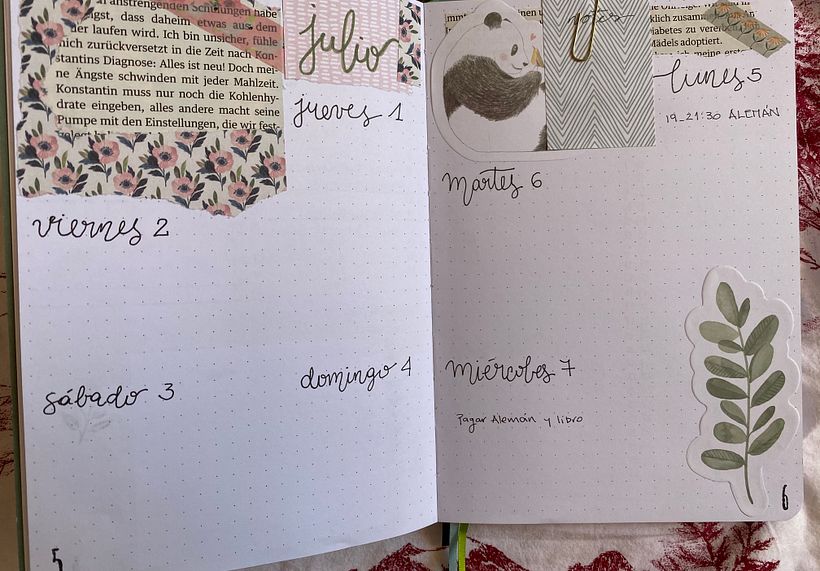 anstrengenden Schulungen habe
ngst, dass daheim etwas aus dem
der laufen wird. Ich bin unsicher, fühle
mich zurückversetzt in die Zeit nach Kon-
stantins Diagnose: Alles ist neu! Doch mei-
ne Ängste schwinden mit jeder Mahlzeit.
Konstantin muss nur noch die Kohlenhy-
drate eingeben, alles andere macht seine
Pumpe mit den Einstellungen, die wir fest-
julio
jueves 1
viernes 2
sábado 3
domingo 4
5
notes
klich zusammen
Diabetes zu
Mädels adoptiert.
lunes 5
19-21:30 ALEMÁN
martes 6
miércoles 7
Pagar Alemán y libro
6